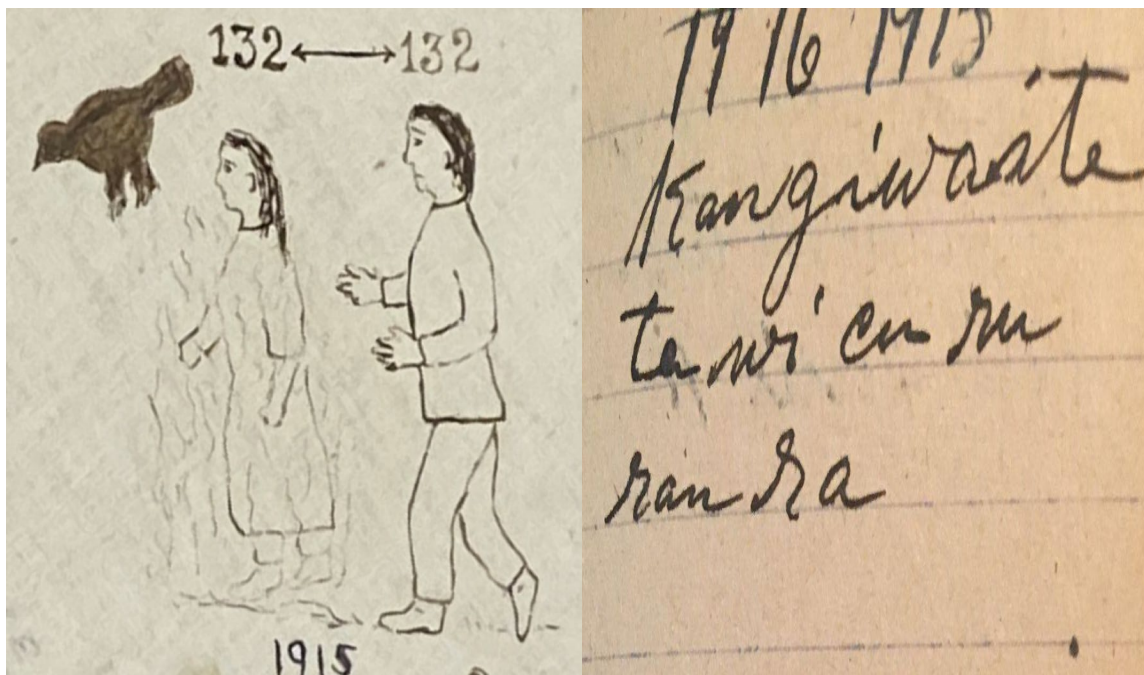 132 ↔ 132
1915
1916 1915
Kangiwaste
tawi cu ru
ran ra